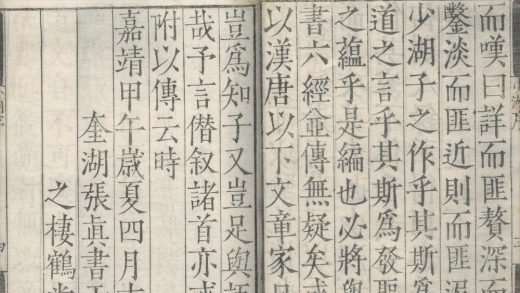 而嘆曰詳而匪贅深而
鑒淡而匪近則而匪
少湖子之作乎其斯爲
道之言乎其斯爲發聖
之蘊乎是編也必將與
書六經並傳無疑矣或
以漢唐以下文章家
豈爲知子又豈足與
哉予言僭叙諸首亦或
附以傳云時
嘉靖甲午歲夏四月
奎湖張眞書
之棲鶴